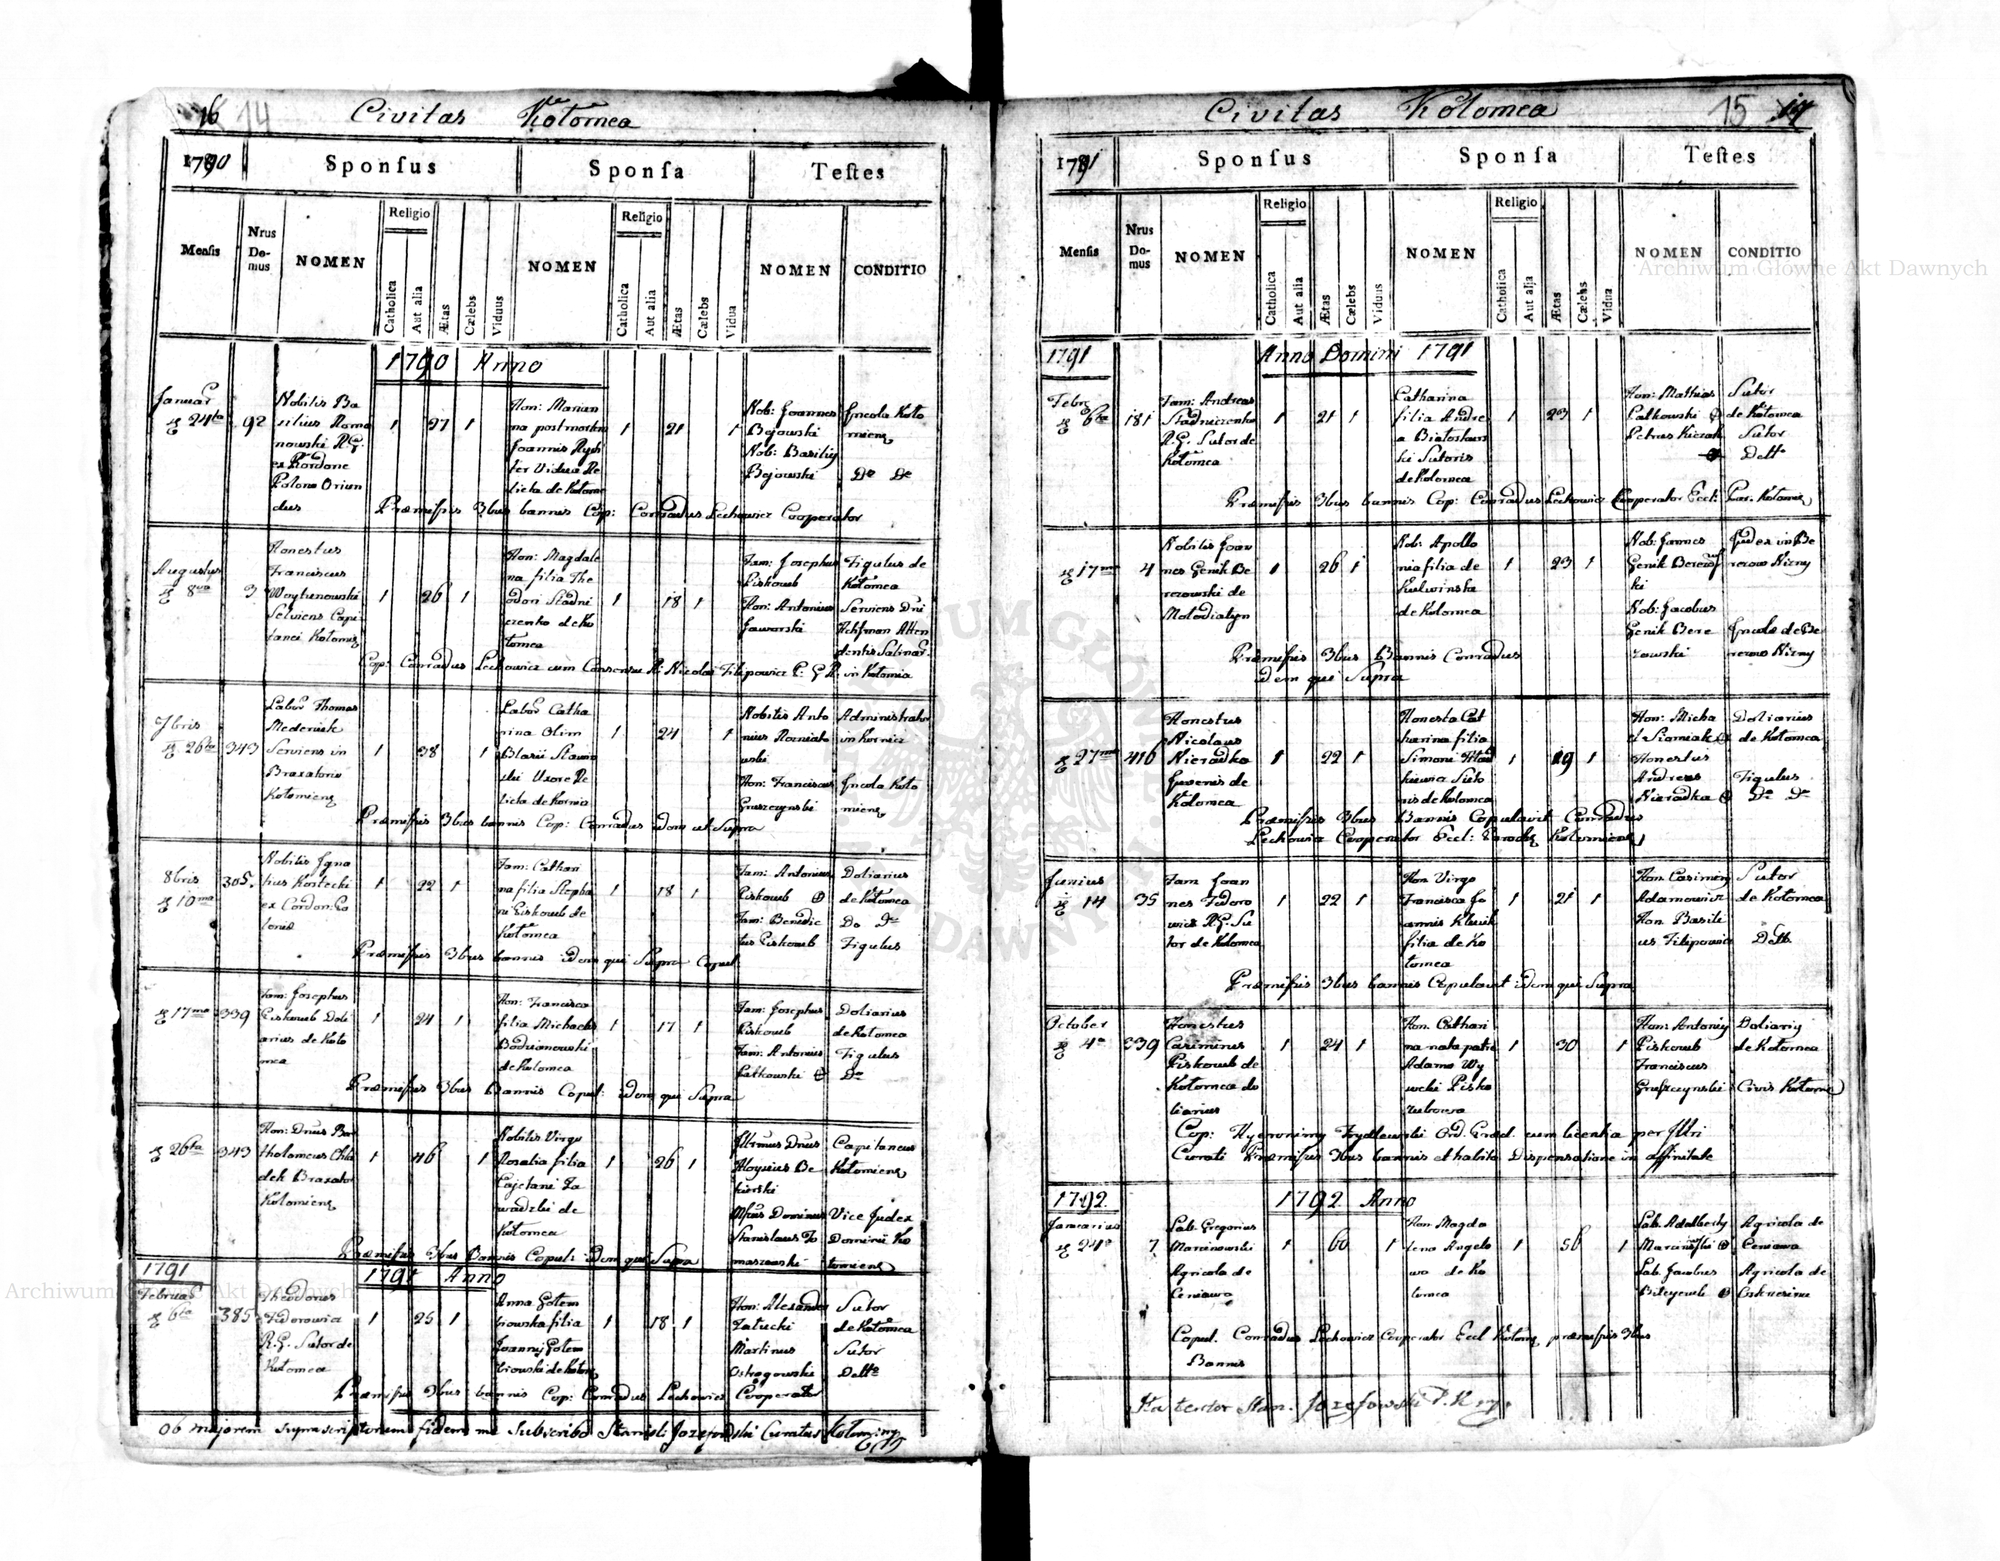 16 14 Civitas Kołomea
1790 Sponſus Sponſa Teſtes
Menſis Nrus Domus NOMEN Religio Catholica Aut alia Ætas Cælebs Viduus NOMEN Religio Catholica Aut alia Ætas Cælebs Vidua NOMEN CONDITIO
1790 Anno
Januar
24ta 92
Nobilis Ba
silius Roma
nowski R.G.
ex Kordone
Polono Orien
dus
1 27 1
Hon: Marian
na post mortem
Joannis Rych
ter Vidua Re
licta de Kołome
1 21 1
Nob: Joannes
Bojowski
Nob: Basiliy
Bojowski
Incola Koło
miens
Do Do
Præmiſsis 3bus bannis Cop: Conradus Lechowicz Cooperator
Augustus
8va 3
Honestus
Franciscus
Woytunowski
Serviens Capi
tanei Kołomie
1 26 1
Hon: Magdale
na filia The
odori Stadni
czenko de Ko
łomea
1 18 1
Fam: Josephus
Piskozub
Hon: Antonius
Jaworski
Figulus de
Kołomea
Serviens Dni
Atten
dentis Salinar.
Cop: Conradus Lechowicz cum Consensu R: Nicolai Filipowicz P: G R. in Kołomia
7bris
26ta 343
Labor Thomas
Mederiuk
Serviens in
Braxatorio
Kołomiens
1 38 1
Labor Catha
rina Olim
Blasii Stawn
ski Uxore Re
licta de Kornia
1 24 1
Nobilis Anto
nius Rozniato
wski
Hon: Franciscus
Gruszczynski
Administrator
in Kornicz
Incola Koło
miens
Præmiſsis 3bus bannis Cop: Conradus idem ut Supra
8bris 305.
10ma
Nobilis Igna
tius Kostecki
ex Cordon: Po
lonie
1 22 1
Fam: Cathari
na filia Stepha
ni Piskozub de
Kołomea
1 18 1
Fam: Antonius
Piskozub
Fam: Benedic
tus Piskozub
Doliarius
de Kołomea
Do Do
Figulus
Præmiſsis 3bus bannis idem qui Supra Copul:
17ma 339
Fam: Josephus
Piskozub Doli
arius de Koło
mea
1 24 1
Hon: Francisca
filia Michaelis
Bodzianowski
de Kołomea
1 17 1
Fam: Josephus
Piskozub
Fam: Antonius
Pałkowski
Doliarius
de Kołomea
Figulus
Do
Præmiſsis 3bus Bannis Copul: idem qui Supra
26ta 343
Hon: Dnus Bar
tholomeus Chla
dek Braxator
Kołomiens
1 46 1
Nobilis Virgo
Rosalia filia
Cajetani Za
wadzki de
Kołomea
1 26 1
Illrmus Dnus
Aloysius Be
kierski
Dominus
Stanislaus To
maszewski
Capitaneus
Kołomiens
Vice Judex
Dominii Ko
łomiens
Præmiſsis 3bus Bannis Copul: Idem qui Supra
1791 1791 Anno
Februar
6ta 385
Theodorus
Fedorowicz
R.G. Sutor de
Kołomea
1 25 1
Anna Gołem
biowska filia
Joannis Gołem
biowski de Kołom
1 18 1
Hon: Alexander
Załucki
Martinus
Ostrogowski
Sutor
de Kołomea
Sutor
Detto
Præmiſsis 3bus bannis Cop: Conradus Lechowicz Cooperator
Ob majorem suprascriptorum fidem me Subscribo Stanisl: Jozefowski Curatus Kołomiy
Civitas Kołomea 15 17
1791 Sponſus Sponſa Teſtes
Menſis Nrus Domus NOMEN Religio Catholica Aut alia Ætas Cælebs Viduus NOMEN Religio Catholica Aut alia Ætas Cælebs Vidua NOMEN CONDITIO
1791 Anno Domini 1791
Febr
6ta 181
Fam: Andreas
Stadniczenko
R.G. Sutor de
Kołomea
1 21 1
Catharina
filia Andre
a Białoskurs
ki Sutoris
de Kołomea
1 23 1
Hon: Mathias
Pałkowski
Petrus Kiczak
Sutor
de Kołomea
Sutor
Detto
Præmiſsis 3bus bannis Cop: Conradus Lechowicz Cooperator Eccl: Par. Kołomie
17ma 4
Nobilis Joan
nes Genik Be
rezowski de
Mołodiatyn
1 26 1
Nob: Apollo
nia filia de
Kulwinska
de Kołomea
1 23 1
Nob: Joannes
Genik Berezows
ki
Nob: Jacobus
Genik Bere
zowski
Judex in Be
rezow Nizny
Incola de Be
rezow Nizny
Præmiſsis 3bus Bannis Conradus
idem qui Supra
27ma 416
Honestus
Nicolaus
Nieradka
Juvenis de
Kołomea
1 22 1
Honesta Cat
harina filia
Simonis
kiewicz Suto
ris de Kołomea
1 19 1
Hon: Micha
el Siomiak
Honestus
Andreas
Nieradka
Doliarius
de Kołomea
Figulus
Do Do
Præmiſsis 3bus Bannis Copulavit Conradus
Lechowicz Cooperator Eccl: Paroch Kołomiens
Junius
14 35
Fam Joan
nes Fedoro
wicz R.G. Su
tor de Kołomea
1 22 1
Hon Virgo
Francisca Jo
annis Kluik
filia de Ko
łomea
1 21 1
Hon Casimiry
Adamowicz
Hon. Basili
us Filipowicz
Sutor
de Kołomea
Detto
Præmiſsis 3bus bannis Copulavit idem qui Supra
October
4a 339
Honestus
Casimirus
Piskozub de
Kołomea do
liarius
1 24 1
Hon. Cathari
na nata patre
Adamo Wy
socki Pisko
zubowa
1 30 1
Hon: Antoniy
Piskozub
Franciscus
Gruszczynski
Doliariy
de Kołomea
Civis Kołome
Cop: Hyeronimy Frydlewski Ord. Præd. cum licentia per Illri
Curati Præmiſsis 3bus bannis et habita Dispensatione in affinitate
1792 1792 Anno
Januarius
24a 7
Lab. Gregorius
Marcinowski
Agricola de
Ceniawa
1 60 1
Hon Magda
lena Angelo
wa de Ko
łomea
1 56 1
Lab. Adalberty
Marcinowski
Lab. Jacobus
Agricola de
Ceniawa
Agricola de
Copul. Conradus Lechowicz Cooperator Eccl Kołom præmiſsis 3bus
Bannis
Ita testor Stan. Jozefowski
Archiwum Główne Akt Dawnych
Archiwum Główne Akt Dawnych